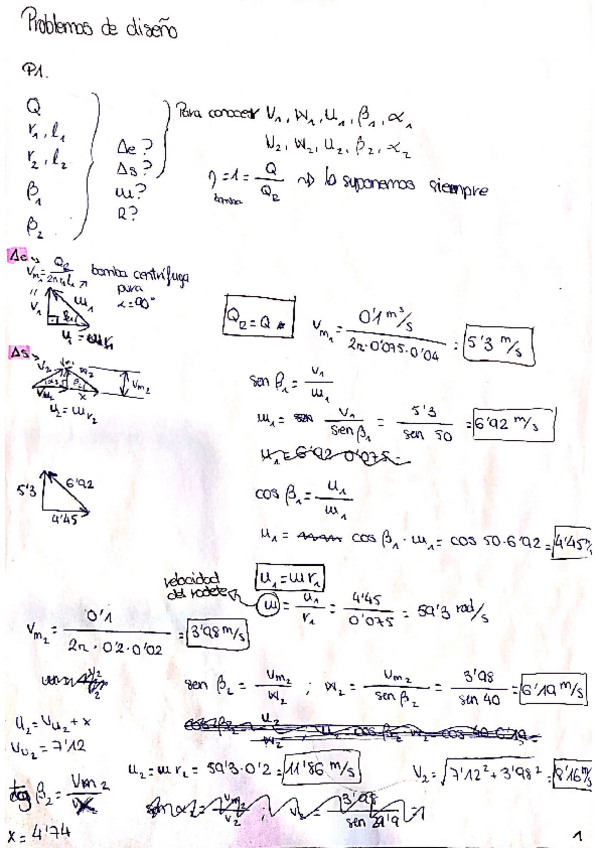 Problemas de diseño
P1.
Q
r₁, l₁
r₂, l₂
β₁
β₂
Δe?
Δs?
ω?
R?
Para conocer V₁, W₁, U₁, β₁, α₁
V₂, W₂, U₂, β₂, α₂
η = 1 = Q/Q_R ⇝ lo suponemos siempre
bomba
Δe
V_m₁ = Q_R/2π r₁ l₁
bomba centrífuga
pura
α = 90°
V₁
ω₁
β₁
U₁ = ω r₁
Q_R = Q
V_m₁ = 0'1 m³/s / 2π·0'075·0'04 = 5'3 m/s
Δs
V₂
ω₂
α₂
β₂
V_m₂
V_u₂
x
U₂ = ω r₂
sen β₁ = V₁/ω₁
ω₁ = V₁/sen β₁ = 5'3/sen 50 = 6'92 m/s
U₁ = 6'92 0'075
cos β₁ = U₁/ω₁
5'3
6'92
4'45
U₁ = cos β₁ · ω₁ = cos 50 · 6'92 = 4'45
U₁ = ω r₁
velocidad
del rodete
ω = U₁/r₁ = 4'45/0'075 = 59'3 rad/s
V_m₂ = 0'1/2π·0'2·0'02 = 3'98 m/s
sen β₂ = V_m₂/W₂ ; W₂ = V_m₂/sen β₂ = 3'98/sen 40 = 6'19 m/s
U₂ = V_u₂ + x
V_u₂ = 7'12
U₂ = ω r₂ = 59'3·0'2 = 11'86 m/s
V₂ = √7'12² + 3'98² = 8'16 m/s
tg β₂ = V_m₂/x
x = 4'74
1